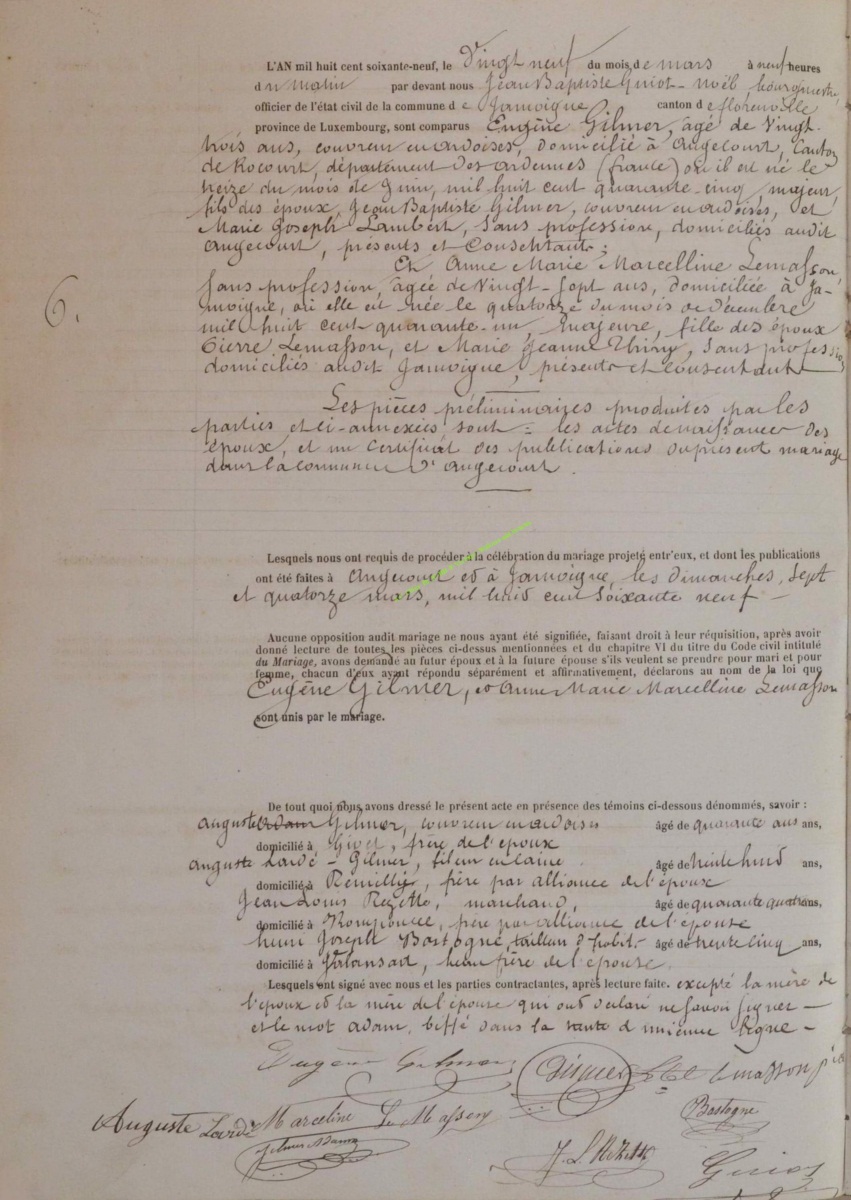 L'AN mil huit cent soixante-neuf, le Vingt neuf du mois, de mars à neuf heures
du matin par devant nous Jean Baptiste Guiot-Noël, bourgmestre
officier de l'état civil de la commune de Jamoigne canton de florenville
province de Luxembourg, sont comparus Eugène Gilmer, âgé de Vingt
trois ans, couvreur en ardoises, domicilié à Angecourt, Canton
de Rocourt, département des ardennes (france) où il est né le
treize du mois de Juin, mil huit cent quarante-cinq majeur,
fils des époux, Jean Baptiste Gilmer, couvreur en ardoises, et
Marie Joseph Lambert, sans profession, domiciliés audit
angecourt, présents et Consentants ;
Et Anne Marie Marcelline Lemasson,
sans profession, âgée de Vingt-sept ans, domiciliée à Ja-
moigne, où elle est née le quatorze du mois de décembre
mil huit cent quarante-un, majeure, fille des époux
Pierre Lemasson, et Marie Jeanne Thiry, sans profession
domiciliés audit Jamoigne, présents et consentants
6.
Les pièces préliminaires produites par les
parties et ci-annexées sont = les actes de naissances des
époux, et un Certificat des publications du présent mariage
dans la commune d'angecourt.
Lesquels nous ont requis de procéder à la célébration du mariage projeté entr'eux, et dont les publications
ont été faites à Angecourt et à Jamoigne, les dimanches, sept
et quatorze mars, mil huit cent soixante neuf —
Aucune opposition audit mariage ne nous ayant été signifiée, faisant droit à leur réquisition, après avoir
donné lecture de toutes les pièces ci-dessus mentionnées et du chapitre VI du titre du Code civil intitulé
du Mariage, avons demandé au futur époux et à la future épouse s'ils veulent se prendre pour mari et pour
femme, chacun d'eux ayant répondu séparément et affirmativement, déclarons au nom de la loi que
Eugène Gilmer, et Anne Marie Marcelline Lemasson
sont unis par le mariage.
De tout quoi nous avons dressé le présent acte en présence des témoins ci-dessous dénommés, savoir :
auguste adam Gilmer, couvreur en ardoises âgé de quarante ans ans,
domicilié à Givet, frère de l'époux
auguste Lardé-Gilmer, fileur en laine âgé de trente huit ans,
domicilié à Remilly, frère par alliance de l'époux
Jean Louis marchand, âgé de quarante quatre ans,
domicilié à frère par alliance de l'épouse
henri Joseph Bastogne, tailleur d'habit- âgé de trente cinq ans,
domicilié à Jalansart, beau frère de l'épouse
Lesquels ont signé avec nous et les parties contractantes, après lecture faite. excepté la mère de
l'époux et la mère de l'épouse qui ont déclaré ne savoir signer —
et le mot adam, biffé dans la trente ligne —
Eugène Gilmer Lemasson
Auguste Lardé Marceline Le Masson Bastogne
Gilmer Adam Guiot